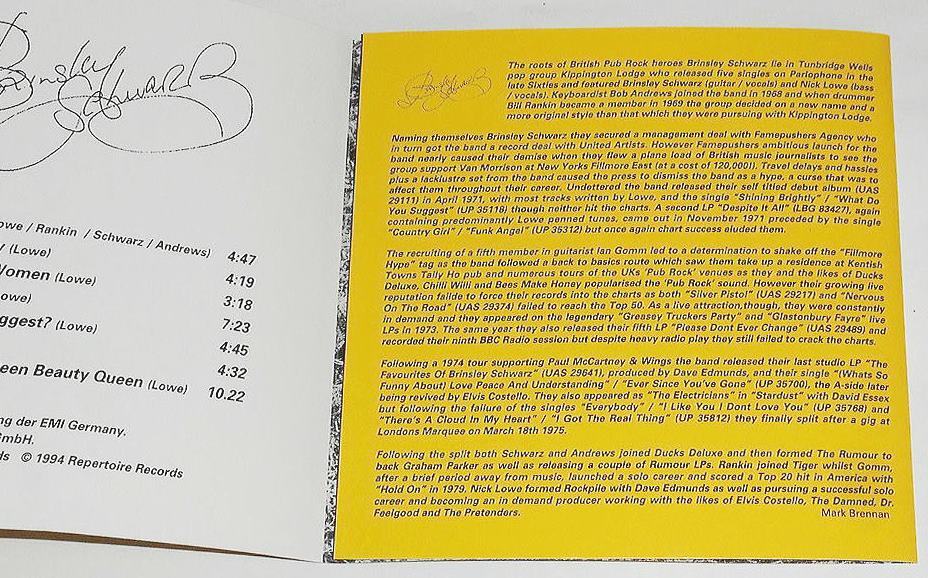 Brinsley
Schwarz
owe / Rankin / Schwarz / Andrews) 4:47
(Lowe) 4:19
Women (Lowe) 3:18
owe) 7:23
ggest? (Lowe) 4:45
4:32
een Beauty Queen (Lowe) 10.22
ng der EMI Germany.
GmbH.
ds © 1994 Repertoire Records
Brinsley Schwarz
The roots of British Pub Rock heroes Brinsley Schwarz lie in Tunbridge Wells
pop group Kippington Lodge who released five singles on Parlophone in the
late Sixties and featured Brinsley Schwarz (guitar / vocals) and Nick Lowe (bass
/ vocals). Keyboardist Bob Andrews joined the band in 1968 and when drummer
Bill Rankin became a member in 1969 the group decided on a new name and a
more original style than that which they were pursuing with Kippington Lodge.
Naming themselves Brinsley Schwarz they secured a management deal with Famepushers Agency who
in turn got the band a record deal with United Artists. However Famepushers ambitious launch for the
band nearly caused their demise when they flew a plane load of British music journalists to see the
group support Van Morrison at New Yorks Fillmore East (at a cost of 120,000!). Travel delays and hassles
plus a lacklustre set from the band caused the press to dismiss the band as a hype, a curse that was to
affect them throughout their career. Undettered the band released their self titled debut album (UAS
29111) in April 1971, with most tracks written by Lowe, and the single "Shining Brightly" / "What Do
You Suggest" (UP 35118) though neither hit the charts. A second LP "Despite It All" (LBG 83427), again
containing predominantly Lowe penned tunes, came out in November 1971 preceded by the single
"Country Girl" / "Funk Angel" (UP 35312) but once again chart success eluded them.
The recruiting of a fifth member in guitarist Ian Gomm led to a determination to shake off the "Fillmore
Hype" tag as the band followed a back to basics route which saw them take up a residence at Kentish
Towns Tally Ho pub and numerous tours of the UKs 'Pub Rock' venues as they and the likes of Ducks
Deluxe, Chilli Willi and Bees Make Honey popularised the 'Pub Rock' sound. However their growing live
reputation failde to force their records into the charts as both "Silver Pistol" (UAS 29217) and "Nervous
On The Road" (UAS 29374) failed to reach the Top 50. As a live attraction,though, they were constantly
in demand and they appeared on the legendary "Greasey Truckers Party" and "Glastonbury Fayre" live
LPs in 1973. The same year they also released their fifth LP "Please Dont Ever Change" (UAS 29489) and
recorded their ninth BBC Radio session but despite heavy radio play they still failed to crack the charts.
Following a 1974 tour supporting Paul McCartney & Wings the band released their last studio LP "The
Favourites Of Brinsley Schwarz" (UAS 29641), produced by Dave Edmunds, and their single "(Whats So
Funny About) Love Peace And Understanding" / "Ever Since You've Gone" (UP 35700), the A-side later
being revived by Elvis Costello. They also appeared as "The Electricians" in "Stardust" with David Essex
but following the failure of the singles "Everybody" / "I Like You I Dont Love You" (UP 35768) and
"There's A Cloud In My Heart" / "I Got The Real Thing" (UP 35812) they finally split after a gig at
Londons Marquee on March 18th 1975.
Following the split both Schwarz and Andrews joined Ducks Deluxe and then formed The Rumour to
back Graham Parker as well as releasing a couple of Rumour LPs. Rankin joined Tiger whilst Gomm,
after a brief period away from music, launched a solo career and scored a Top 20 hit in America with
"Hold On" in 1979. Nick Lowe formed Rockpile with Dave Edmunds as well as pursuing a successful solo
career and becoming an in demand producer working with the likes of Elvis Costello, The Damned, Dr.
Feelgood and The Pretenders. Mark Brennan